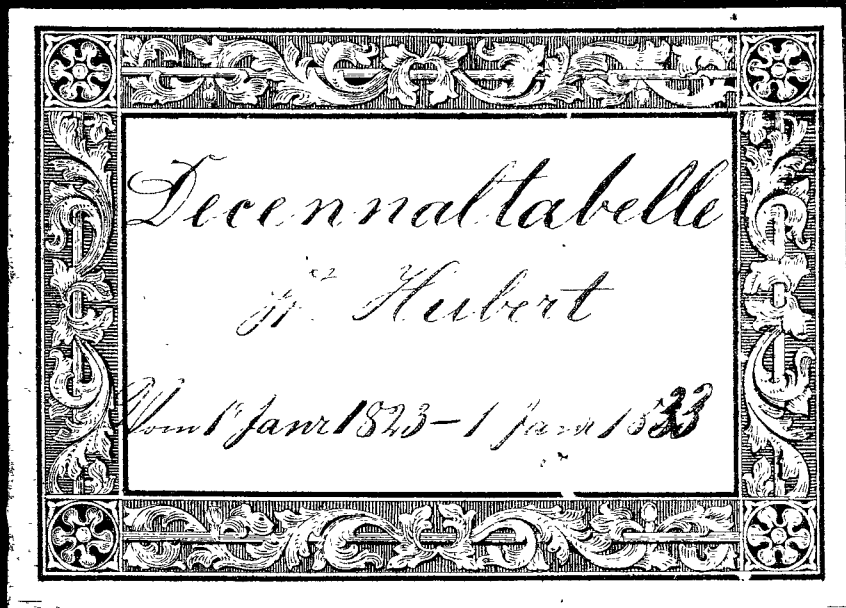 Decennaltabelle
St Hubert
Vom 1t Janr 1823 – 1 Janr 1833